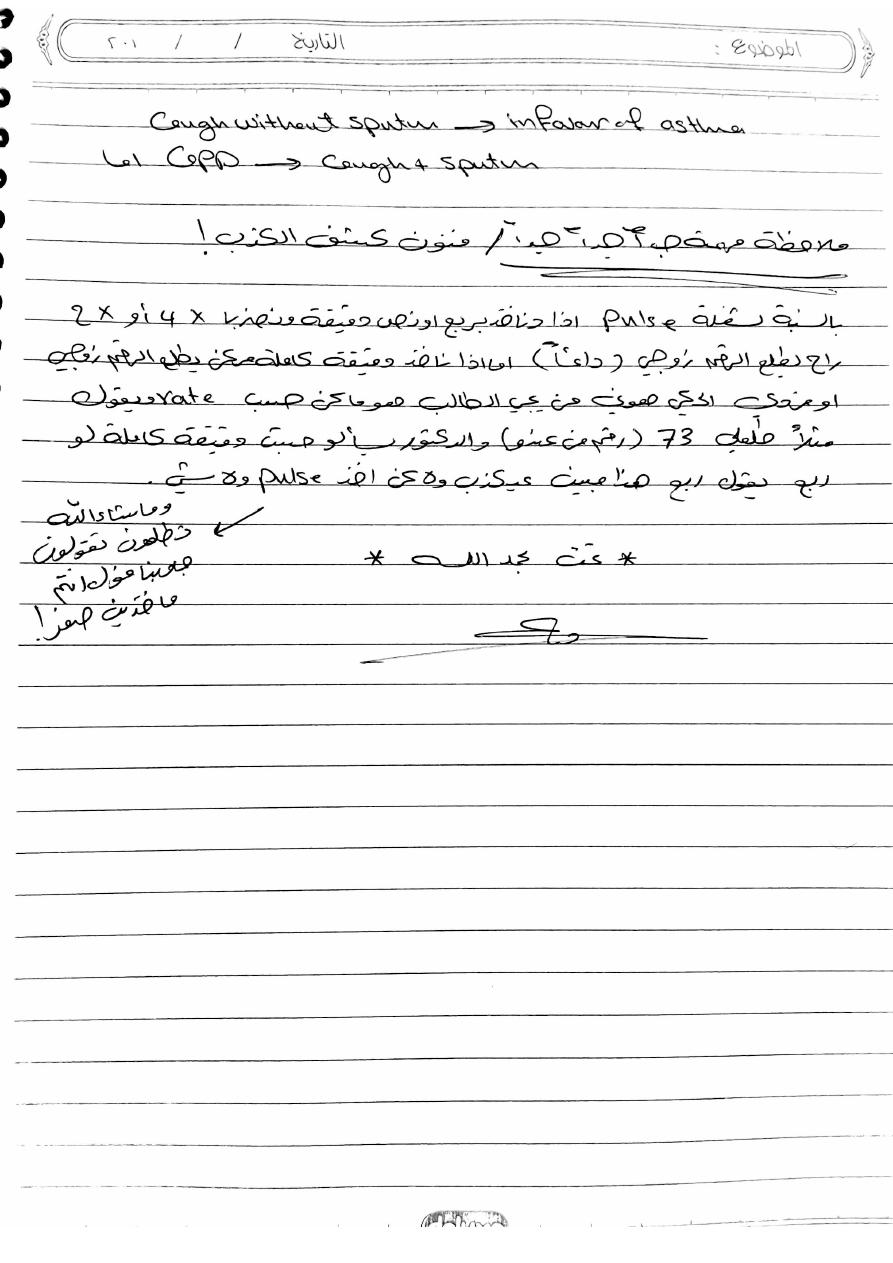 الموضوع : التاريخ / / ٢٠١
Cough without sputum → in favor of asthma
اما COPD → Cough + sputum
ملاحظة مهمة جداً جداً جداً / فنون كشف الكذب !
بالنسبة لشغلة pulse اذا دناخذ بربع او نص دقيقة ونضربا × 4 أو × 2
راح يطلع الرقم زوجي (دائماً) اما اذا ناخذ دقيقة كاملة ممكن يطلع الرقم زوجي
او فردي الحكي هوني من يجي الطالب هو ماكن حسب rate ويقول
مثلاً طلعلي 73 (رقم من عندو) والدكتور يسألو حسبت دقيقة كاملة لو
ربع يقول ربع هذا مبين عيكذب ولا كن اخذ pulse ولا شي .
وما شاء الله
تطلعون تقولون
جبنا فول انتم
ماخذين صفر !
* تمت بحمد الله *